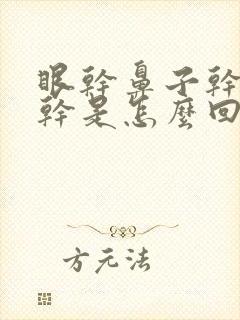 眼幹鼻子幹
幹是怎麼回
方元法